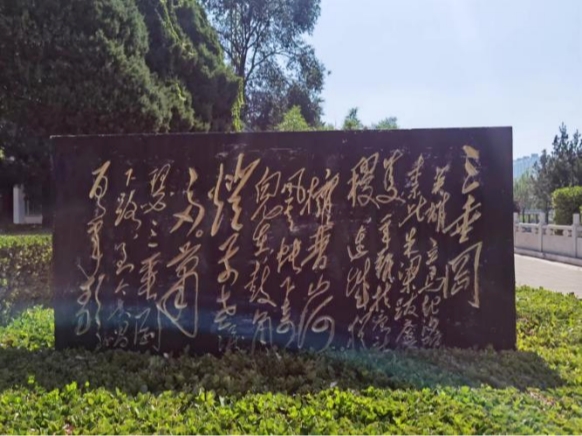 三垂冈
英雄立马起沙陀
奈此朱梁跋扈何
只手难扶唐社
稷连城犹
拥晋山河
风云帐下奇
儿在鼓角
灯前老泪
多萧
瑟三垂冈
下路至今人唱
百年歌